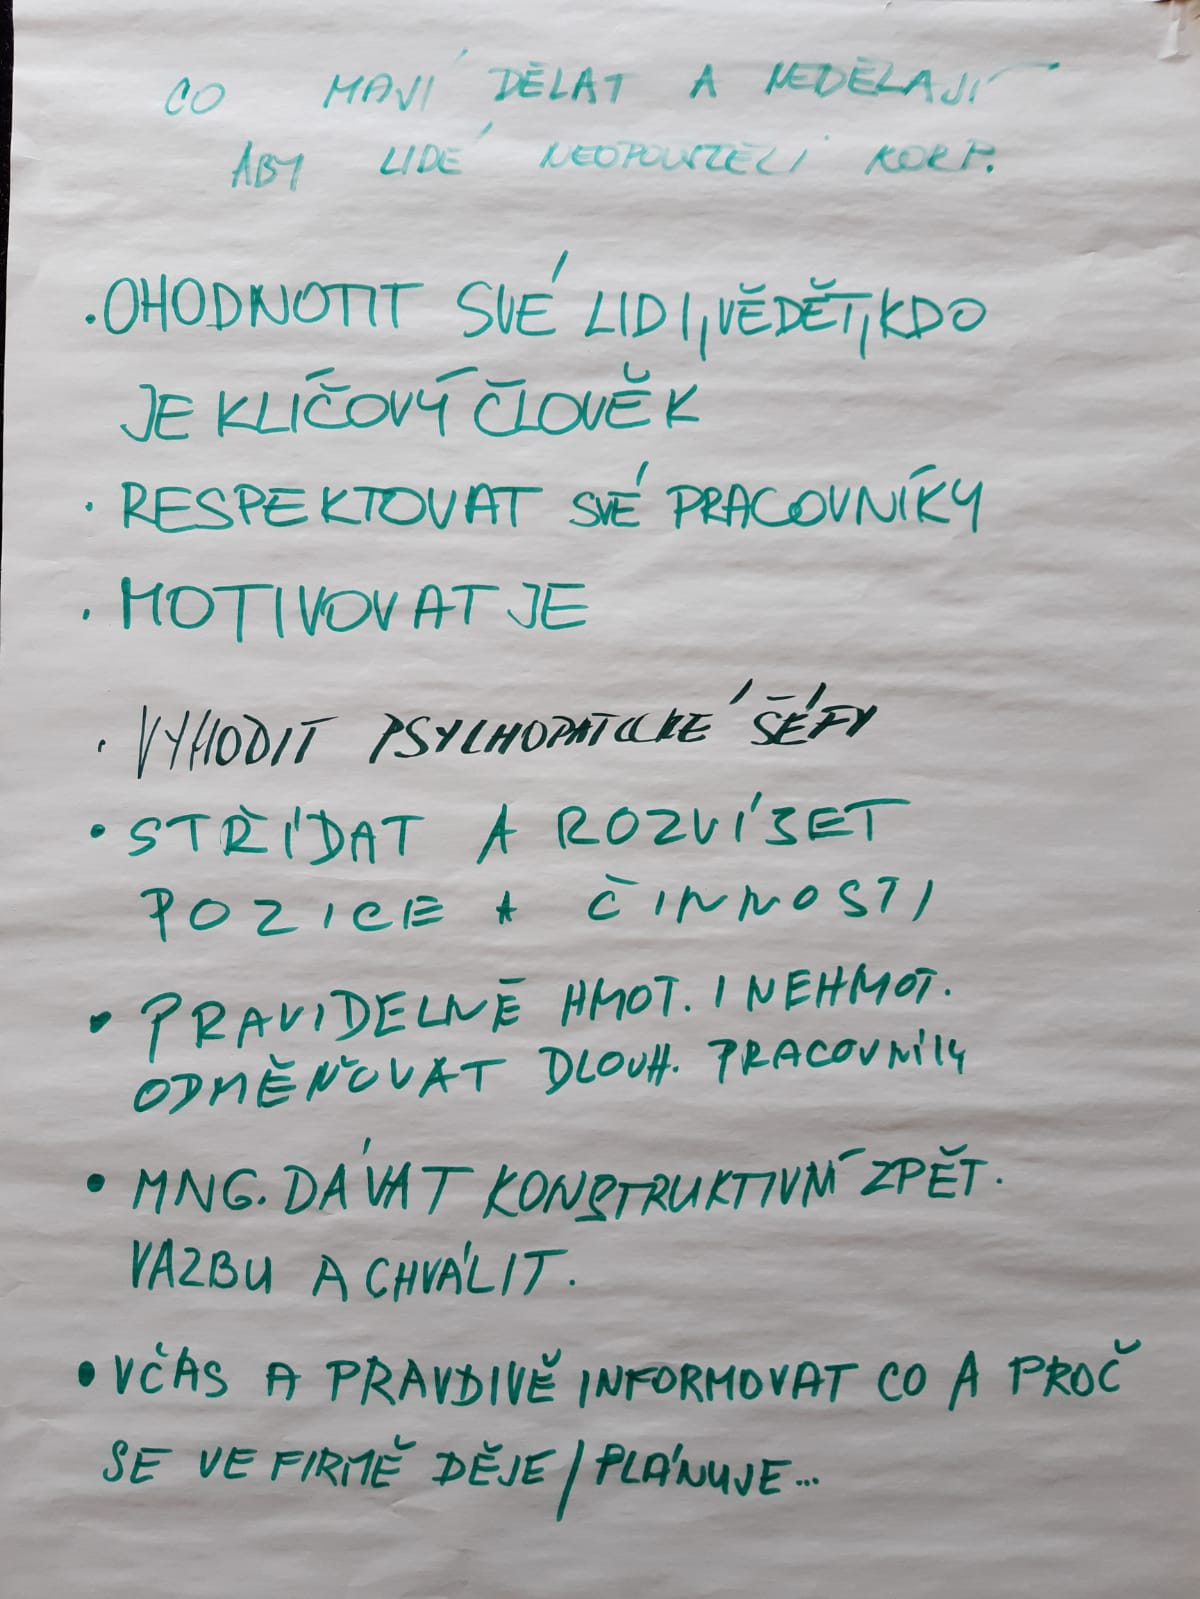 CO MAJÍ DĚLAT A NEDĚLAJÍ
ABY LIDÉ NEOPOUŠTĚLI KORP.
• OHODNOTIT SVÉ LIDI, VĚDĚT, KDO
JE KLÍČOVÝ ČLOVĚK
• RESPEKTOVAT SVÉ PRACOVNÍKY
• MOTIVOVAT JE
• VYHODIT PSYCHOPATICKÉ ŠÉFY
• STŘÍDAT A ROZVÍJET
POZICE A ČINNOSTI
• PRAVIDELNĚ HMOT. I NEHMOT.
ODMĚŇOVAT DLOUH. PRACOVNÍKY
• MNG. DÁVAT KONSTRUKTIVNÍ ZPĚT.
VAZBU A CHVÁLIT.
• VČAS A PRAVDIVĚ INFORMOVAT CO A PROČ
SE VE FIRMĚ DĚJE / PLÁNUJE...